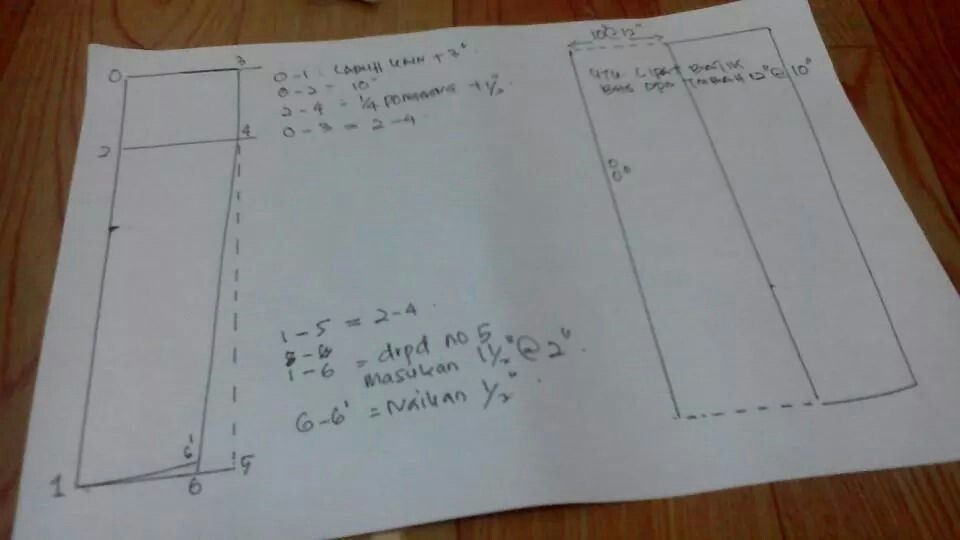 0
3
4
2
1
6'
6
5
0-1 = LABUH KAIN + 3"
0-2 = 10"
2-4 = 1/4 PUNGGUNG + 1/2"
0-3 = 2-4
1-5 = 2-4
1-6 = drpd no 5
masukan 1 1/2" @ 2"
6-6' = Naikan 1/2"
10@12"
UTK LIPAT BATIK
TMBAH 12" @ 10"